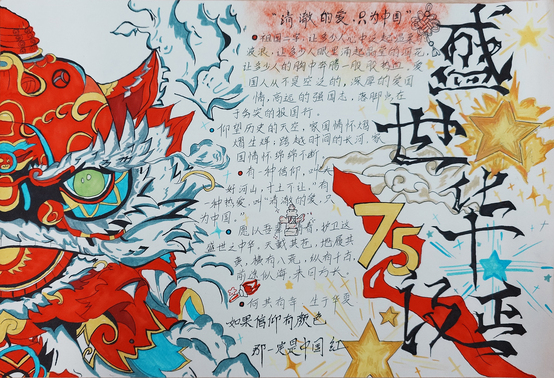 "清澈的爱,只为中国"
祖国一字,让多少人心中泛起
波浪,让多少人眼里涌起
让多少人的胸中奔腾一股股热血。爱
国人从不是空泛的,深厚的爱国
情,高远的强国志,落脚点在
于务实的报国行。
仰望历史的天空,家国情怀熠
熠生辉;跨越时间的长河,家
国情怀绵绵不断
有一种信仰,叫"大
好河山,寸土不让,"有一
种热爱,叫"清澈的爱,只
为中国。"
愿以吾辈之青春,护卫这
盛世之中华。天戴其苍,地履其
黄,横有八荒,纵有千古,
前途似海,来日方长。
何其有幸 生于华夏
如果信仰有颜色
那一定是中国红
盛世华诞
75